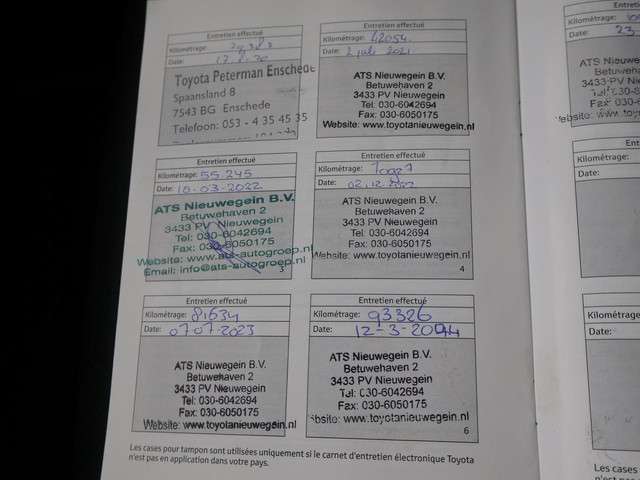 Entretien effectué
Kilométrage:
Date:
Toyota Peterman Enschede
Spaansland 8
7543 BG Enschede
Telefoon: 053 - 4 35 45 35
Entretien effectué
Kilométrage: 42054
Date: 2 juli 2021
ATS Nieuwegein B.V.
Betuwehaven 2
3433 PV Nieuwegein
Tel. 030-6042694
Fax: 030-6050175
Website: www.toyotanieuwegein.nl
Entretien effectué
Kilométrage: 55.245
Date: 10-03-2022
ATS Nieuwegein B.V.
Betuwehaven 2
3433 PV Nieuwegein
Tel: 030-6042694
Fax: 030-6050175
Website: www.ats-autogroep.nl
Email: info@ats-autogroep.nl
3
Entretien effectué
Kilométrage:
Date: 02.12.2022
ATS Nieuwegein B.V.
Betuwehaven 2
3433 PV Nieuwegein
Tel: 030-6042694
Fax: 030-6050175
Website: www.toyotanieuwegein.nl
4
Entretien effectué
Kilométrage: 81634
Date: 07 07 2023
ATS Nieuwegein B.V.
Betuwehaven 2
3433 PV Nieuwegein
Tel: 030-6042694
Fax: 030-6050175
Website: www.toyotanieuwegein.nl
Entretien effectué
Kilométrage: 93326
Date: 12-3-
ATS Nieuwegein B.V.
Betuwehaven 2
3433 PV Nieuwegein
Tel: 030-6042694
Fax: 030-6050175
bsite: www.toyotanieuwegein.nl
6
Les cases pour tampon sont utilisées uniquement si le carnet d'entretien électronique Toyota
n'est pas en application dans votre pays.
Kilométrage:
Date:
Kilométrage:
Date:
Les cases
n'est pas